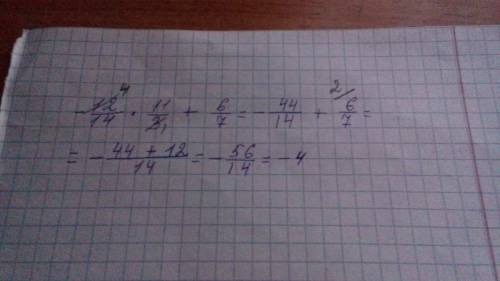 -12/14 4 · 11/3 1 + 6/7 = - 44/14 + 2/ 6/7 =
= - 44 + 12/14 = - 56/14 = - 4